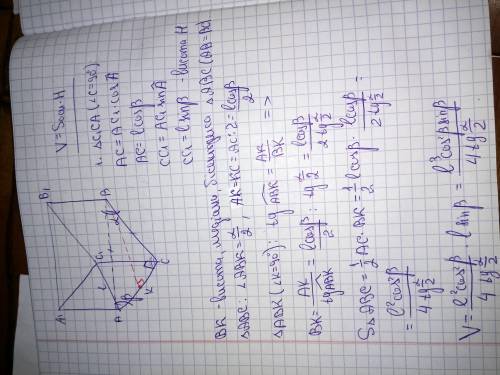 V = Sосн · H
1. ΔC₁CA (∠C = 90°)
AC = AC₁ · cos A
AC = l cosβ
CC₁ = AC₁ sin A
CC₁ = l sinβ - висота H
A₁ B₁ C₁
l
A B C
β α K
BK - висота, медіана, бісектриса ΔABC (AB = BC)
ΔABC: ∠ABK = α/2, AK = KC = AC : 2 = l cosβ / 2
ΔABK (∠K = 90°): tg ABK = AK / BK =>
BK = AK / tg ABK = l cosβ / 2 : tg α/2 = l cosβ / 2 tg α/2
SΔABC = 1/2 AC · BK = 1/2 l cosβ · l cosβ / 2 tg α/2 =
= l² cos²β / 4 tg α/2
V = l² cos²β / 4 tg α/2 · l sinβ = l³ cos²β sinβ / 4 tg α/2